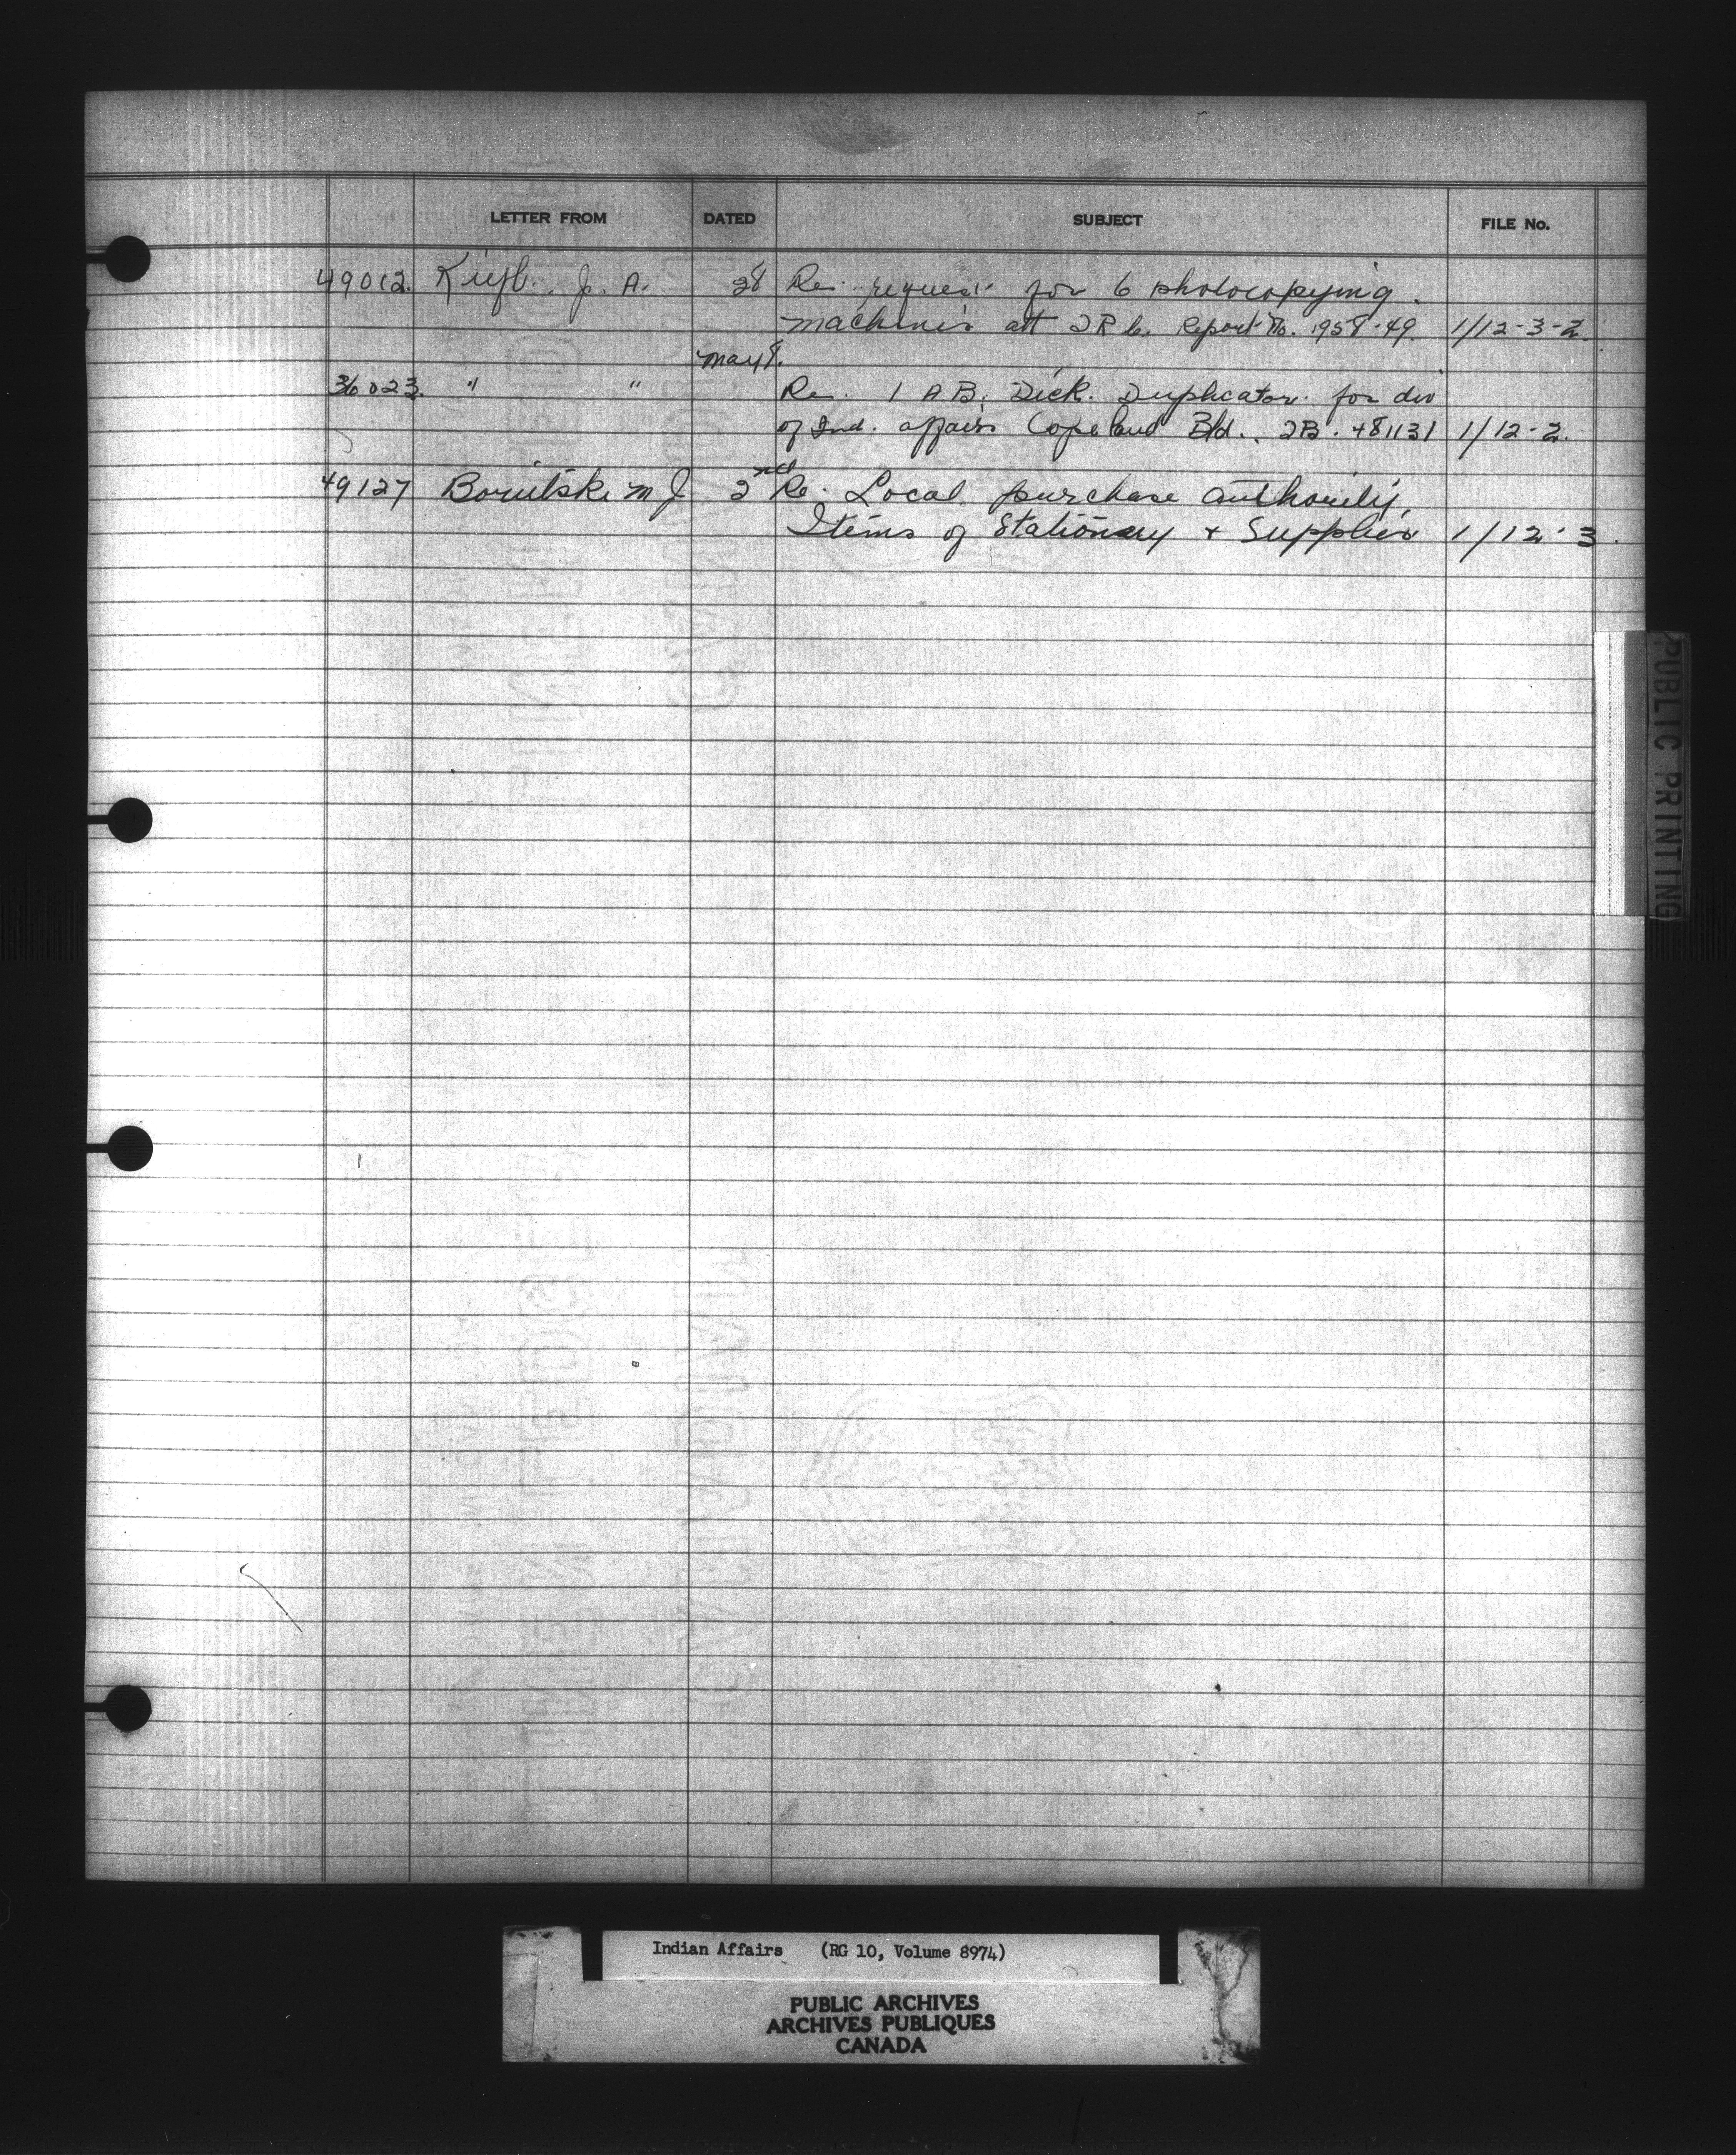 LETTER FROM DATED SUBJECT FILE No.
49012. J. A. 28 Re. request for 6 photocopying
machines att I R C. Report No. 1958-49. 1/12-3-2.
May 8.
36023. " " Re. 1 A B. Dick. Duplicator. for div
of Ind. affairs Copeland Bld.. 2B. 481131 1/12-2.
49127 M J 2nd Re. Local purchase authority.
Items of Stationery + Supplies 1/12-3.
PUBLIC PRINTING
Indian Affairs (RG 10, Volume 8974)
PUBLIC ARCHIVES
ARCHIVES PUBLIQUES
CANADA